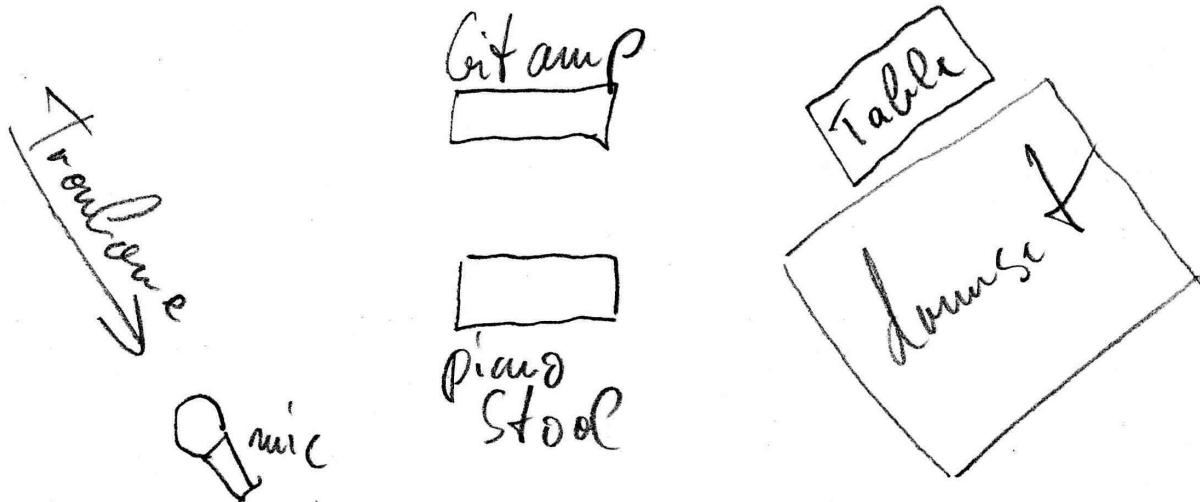 Trombone
mic
Git amp
piano
Stool
Table
drumset